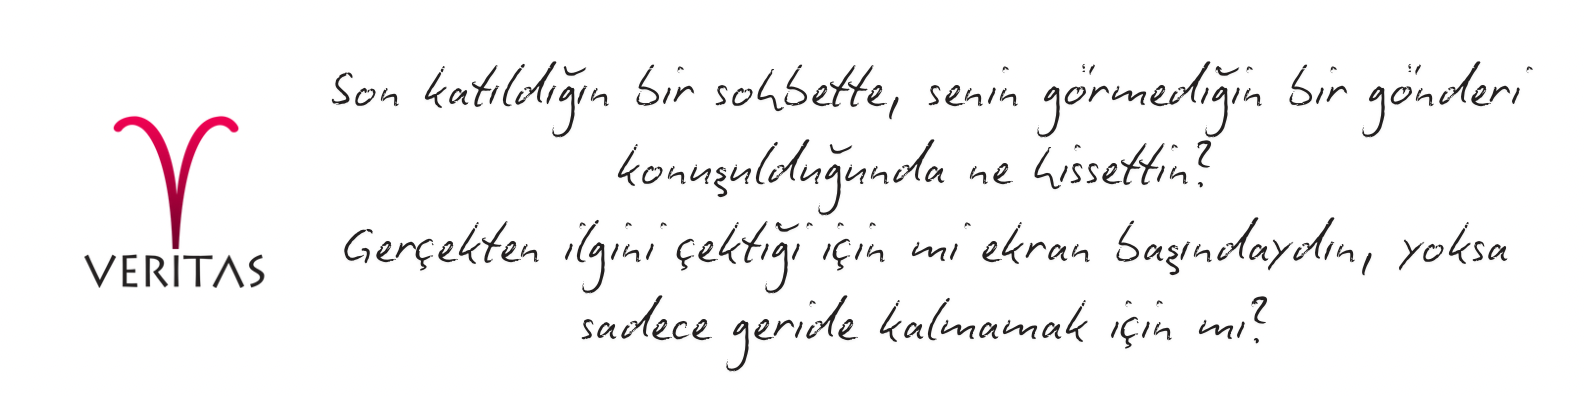 Son katıldığın bir sohbette, senin görmediğin bir gönderi
konuşulduğunda ne hissettin?
Gerçekten ilgini çektiği için mi ekran başındaydın, yoksa
sadece geride kalmamak için mi?
VERITAS